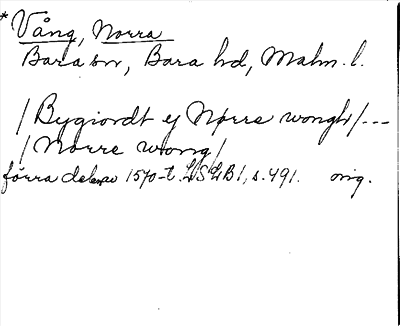 * Vång, Norra
Bara sn, Bara hd, Malm. l.
/Bygiordt ej Nørre wongh/---
/Nørre wong/
förra delen 1570-t. LSLB1, s. 491. orig.